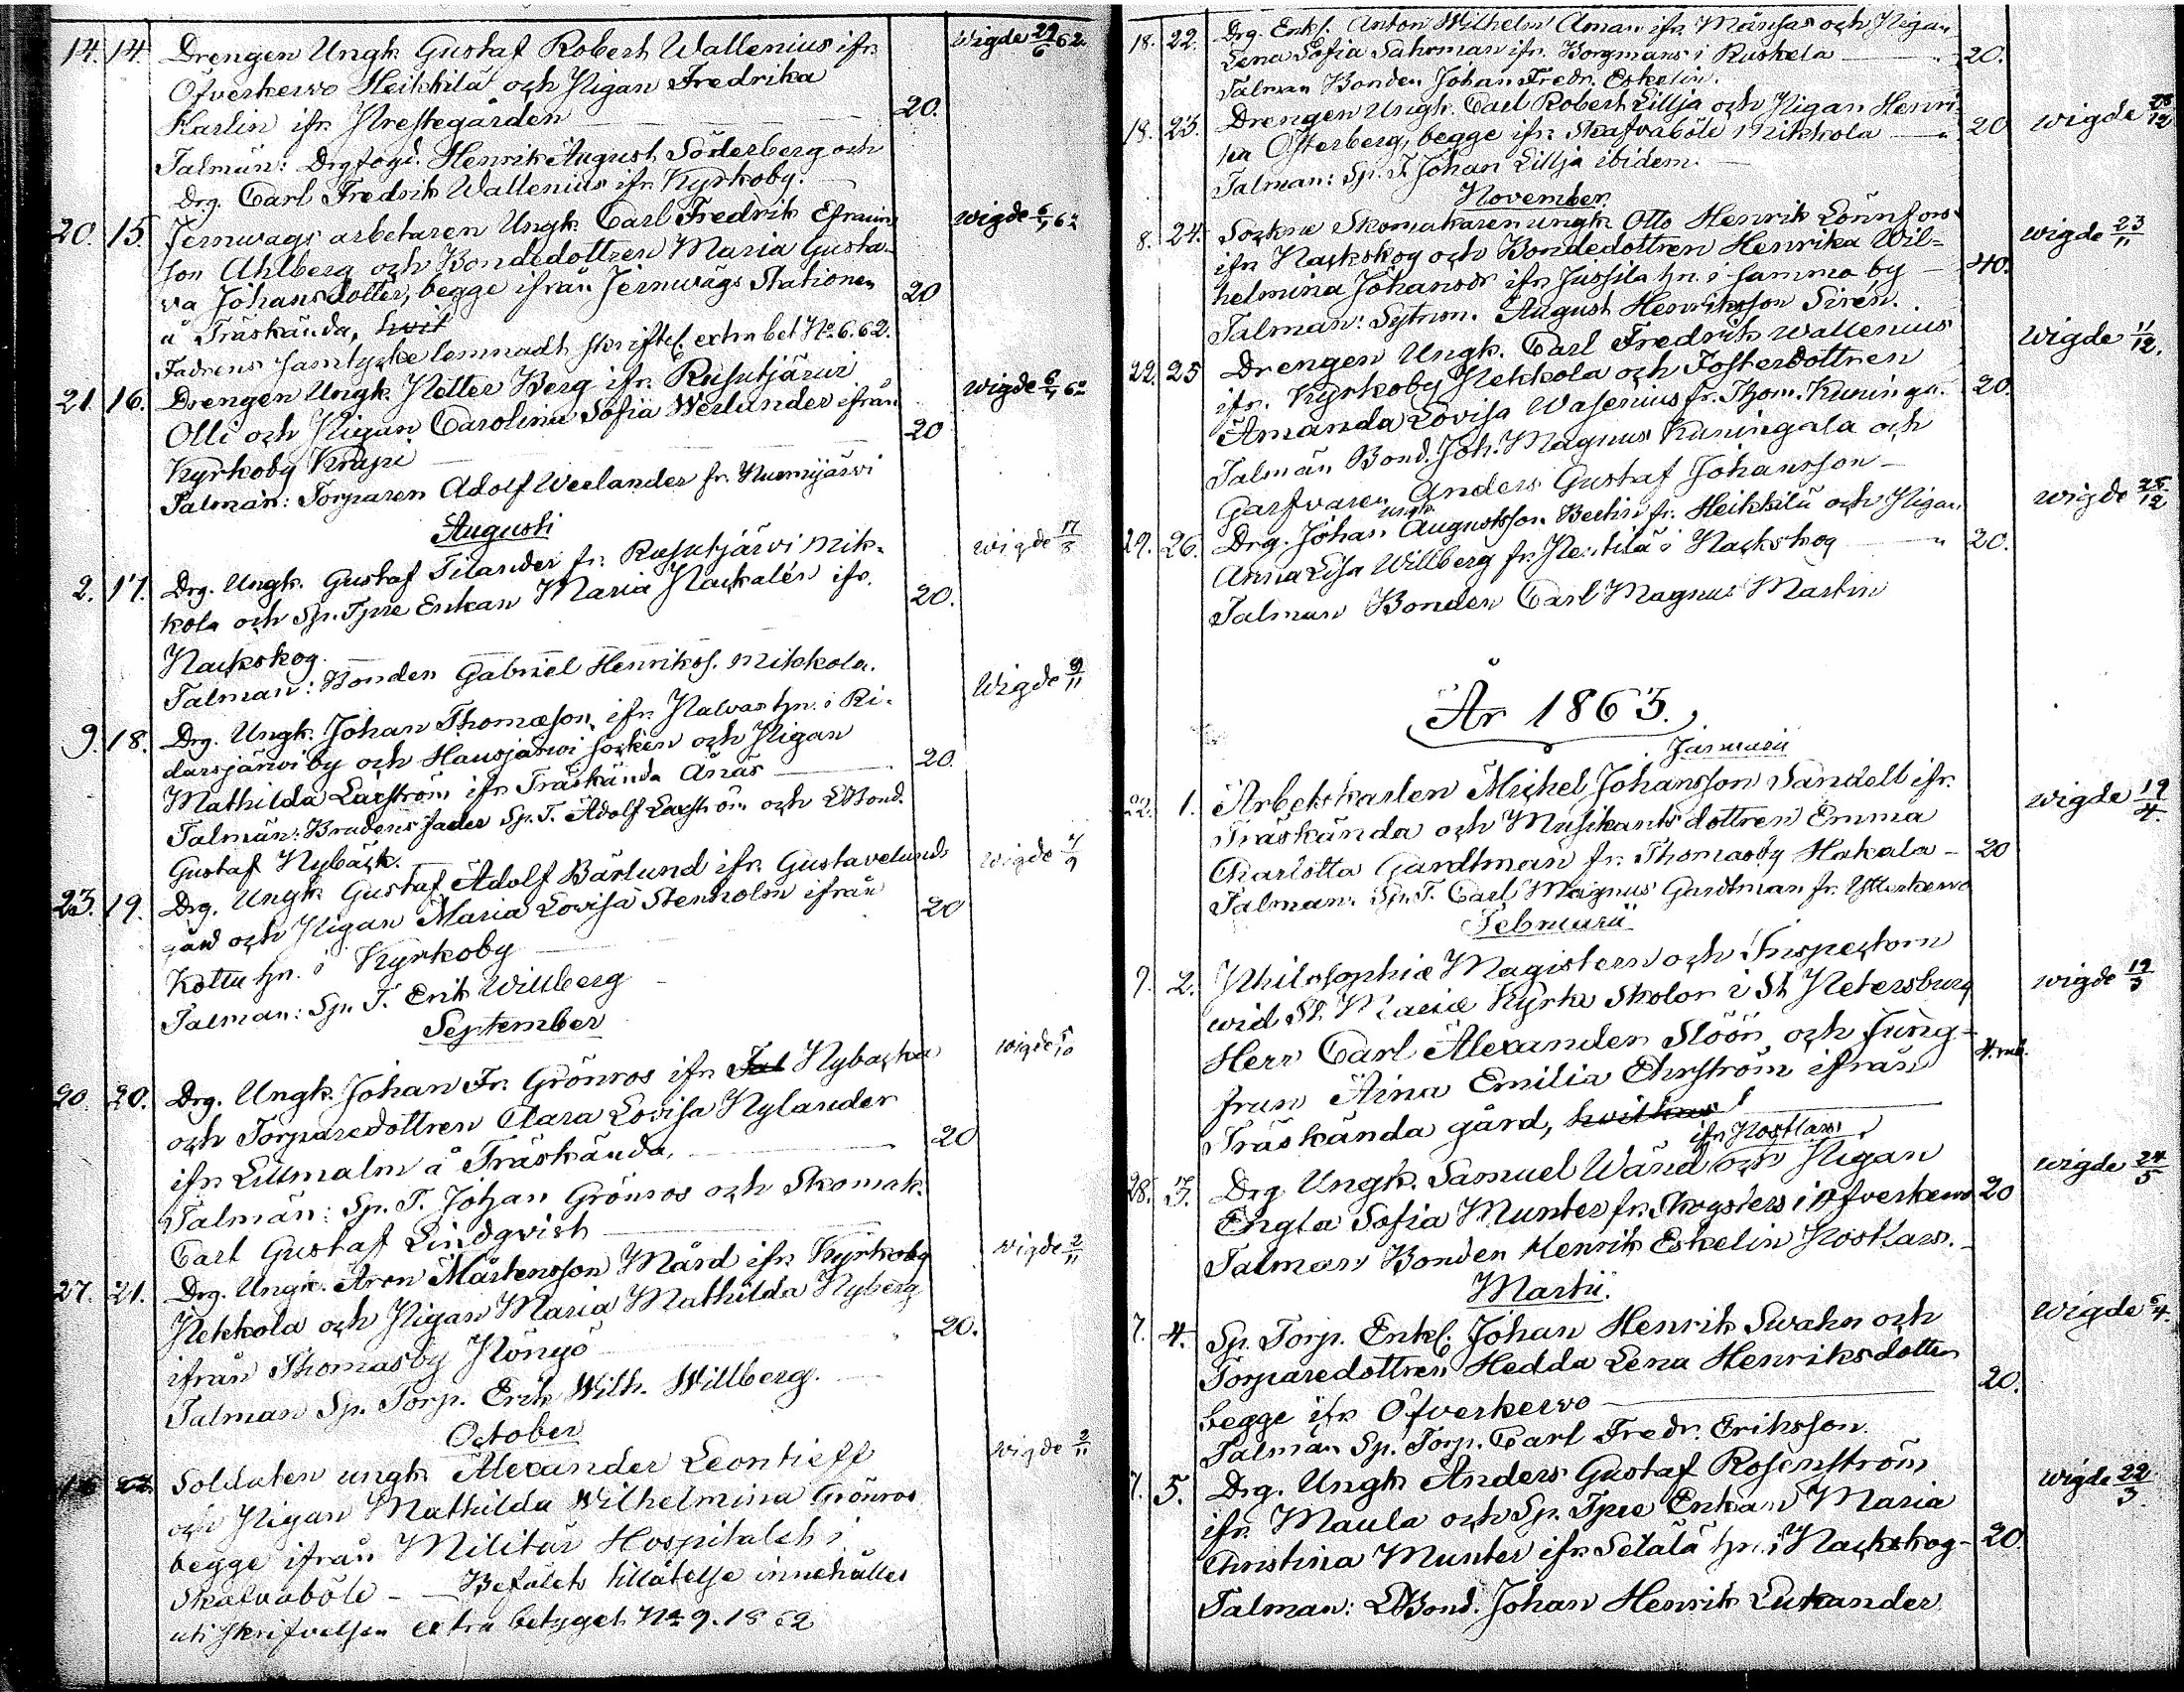 14. 14. Drengen Ungk. Gustaf Robert Wallenius ifr. wigde 29/6 62.
Öfverkervo Heikkilä och Pigan Fredrika
Karlin ifr. Prestegården 20.
Talmän: Drgfogd. Henrik August Söderberg och
Drg. Carl Fredrik Wallenius ifr. Kyrkoby.
20. 15. Jernwägs arbetaren Ungk. Carl Fredrik Efraims wigde 6/7 62
son Ahlberg och Bondedottren Maria Gusta-
va Johansdotter, begge ifrån Jernwägs Stationen 20
å Träskända, hvit
Fadrens samtycke lemnadt skriftel. extra bet No. 6. 62.
21. 16. Drengen Ungk. Petter Berg ifr. Rusutjärvi wigde 6/7 62
Olli och Pigan Carolina Sofia Werlander ifrån
Kyrkoby Krapi 20
Talman: Torparen Adolf Werlander fr. Nuemijärvi
Augusti
2. 17. Drg. Ungk. Gustaf Tilander fr. Rusutjärvi Mik- wigde 17/8
kola och Sp. Tpre Enkan Maria Packalén ifr. 20.
Packskog.
Talman: Bonden Gabriel Henrikss. Mikkola.
9. 18. Drg. Ungk. Johan Thomæson ifr. Palvas hn. i Ri- wigde 9/11
darsjärvi by och Hausjärvi socken och Pigan
Mathilda Laxström ifr. Träskända Ånäs 20.
Talmän: Brudens fader Sp. T. Adolf Laxström och LBond.
Gustaf Nybäck.
23. 19. Drg. Ungk. Gustaf Adolf Bärlund ifr. Gustavelunds wigde 7/9
gård och Pigan Maria Lovisa Stenholm ifrån 20
Kottu hn. i Kyrkoby
Talman: Sp. T. Erik Willberg
September
20. 20. Drg. Ungk. Johan Fr. Grönroos ifr. Tal Nybacka wigde 5/10
och Torparedottren Clara Lovisa Nylander
ifr. Lillmalm å Träskända. 20
Talmän: Sp. T. Johan Grönroos och Skomak.
Carl Gustaf Lindqvist
27. 21. Drg. Ungk. Aron Mårtensson Mård ifr. Kyrkoby wigde 2/11
Pekkola och Pigan Maria Mathilda Nyberg
ifrån Thomasby Pöngö 20.
Talman Sp. Torp. Erik Wilh. Willberg.
October
Soldaten ungk. Alexander Leontieff wigde 2/11
och Pigan Mathilda Wilhelmina Grönroos
begge ifrån Militär Hospitalet i
Skafvaböle - Befälets tillåtelse innehålles
uti skrifvelsen extra betyget No 9. 1862
18. 22. Drg. Enkl. Anton Wilhelm Åman ifr. Månsas och Pigan
Lena Sofia Sahrman ifr. Borgmans i Ruskela 20.
Talman Bonden Johan Fredr. Eskelin.
18. 23. Drengen Ungk. Carl Robert Lillja och Pigan Henri-
ka Österberg, begge ifr. Skafvaböle Mikkola 20 wigde 28/12
Talman: Sp. T. Johan Lillja ibidem.
November
8. 24. Sockne Skomakaren ungk. Otto Henrik Lönnfors wigde 23/11
ifr. Packskog och Bondedottren Henrika Wil-
helmina Johansdr ifr. Jussila hn. i samma by 40.
Talman: Sytnm. August Henriksson Sirén.
22. 25 Drengen Ungk. Carl Fredrik Wallenius wigde 11/12.
ifr. Kyrkoby Pekkola och Fosterdottren
Amanda Lovisa Wasenius fr. Thom. Kuninga. 20.
Talmän Bond. Joh. Magnus Kuningala och
Garfvaren Anders Gustaf Johansson
ungk.
29. 26. Drg. Johan Augustsson Berlin fr. Heikkilä och Pigan wigde 28/12
Anna Lisa Willberg fr. Pentilä i Packskog 20.
Talman Bonden Carl Magnus Martin
År 1863.
Januarii
22. 1. Arbetskarlen Michel Johansson Sandell ifr. wigde 19/4.
Träskända och Musikants dottren Emma
Charlotta Gardtman fr. Thomasby Hakala 20
Talman: Sp. T. Carl Magnus Gardtman fr. Ytterkervo
Februarii
9. 2. Philosophiæ Magistern och Inspectorn wigde 19/3
wid St. Mariæ Kyrko Skolor i St. Petersburg
Herr Carl Alexander Slöör och Jung-
frun Aina Emilia Ehrström ifrån 4. rub.
Träskända gård, hvilkas
ifr. Postlars
28. 3. Drg. Ungk. Samuel Wänd och Pigan wigde 24/5
Engla Sofia Munter fr. Skogsters i Öfverkervo 20
Talman Bonden Henrik Eskelin Postlars.
Martii.
7. 4. Sp. Torp. Enkl. Johan Henrik Swahn och wigde 6/4.
Torparedottren Hedda Lena Henriksdotter
begge ifr. Öfverkervo 20.
Talman Sp. Torp. Carl Fredr. Eriksson.
7. 5. Drg. Ungk. Anders Gustaf Rosenström wigde 22/3.
ifr. Maula och Sp. Tpre Enkan Maria
Christina Munter ifr. Setälä hn. i Packskog 20
Talman: LBond. Johan Henrik Lukander